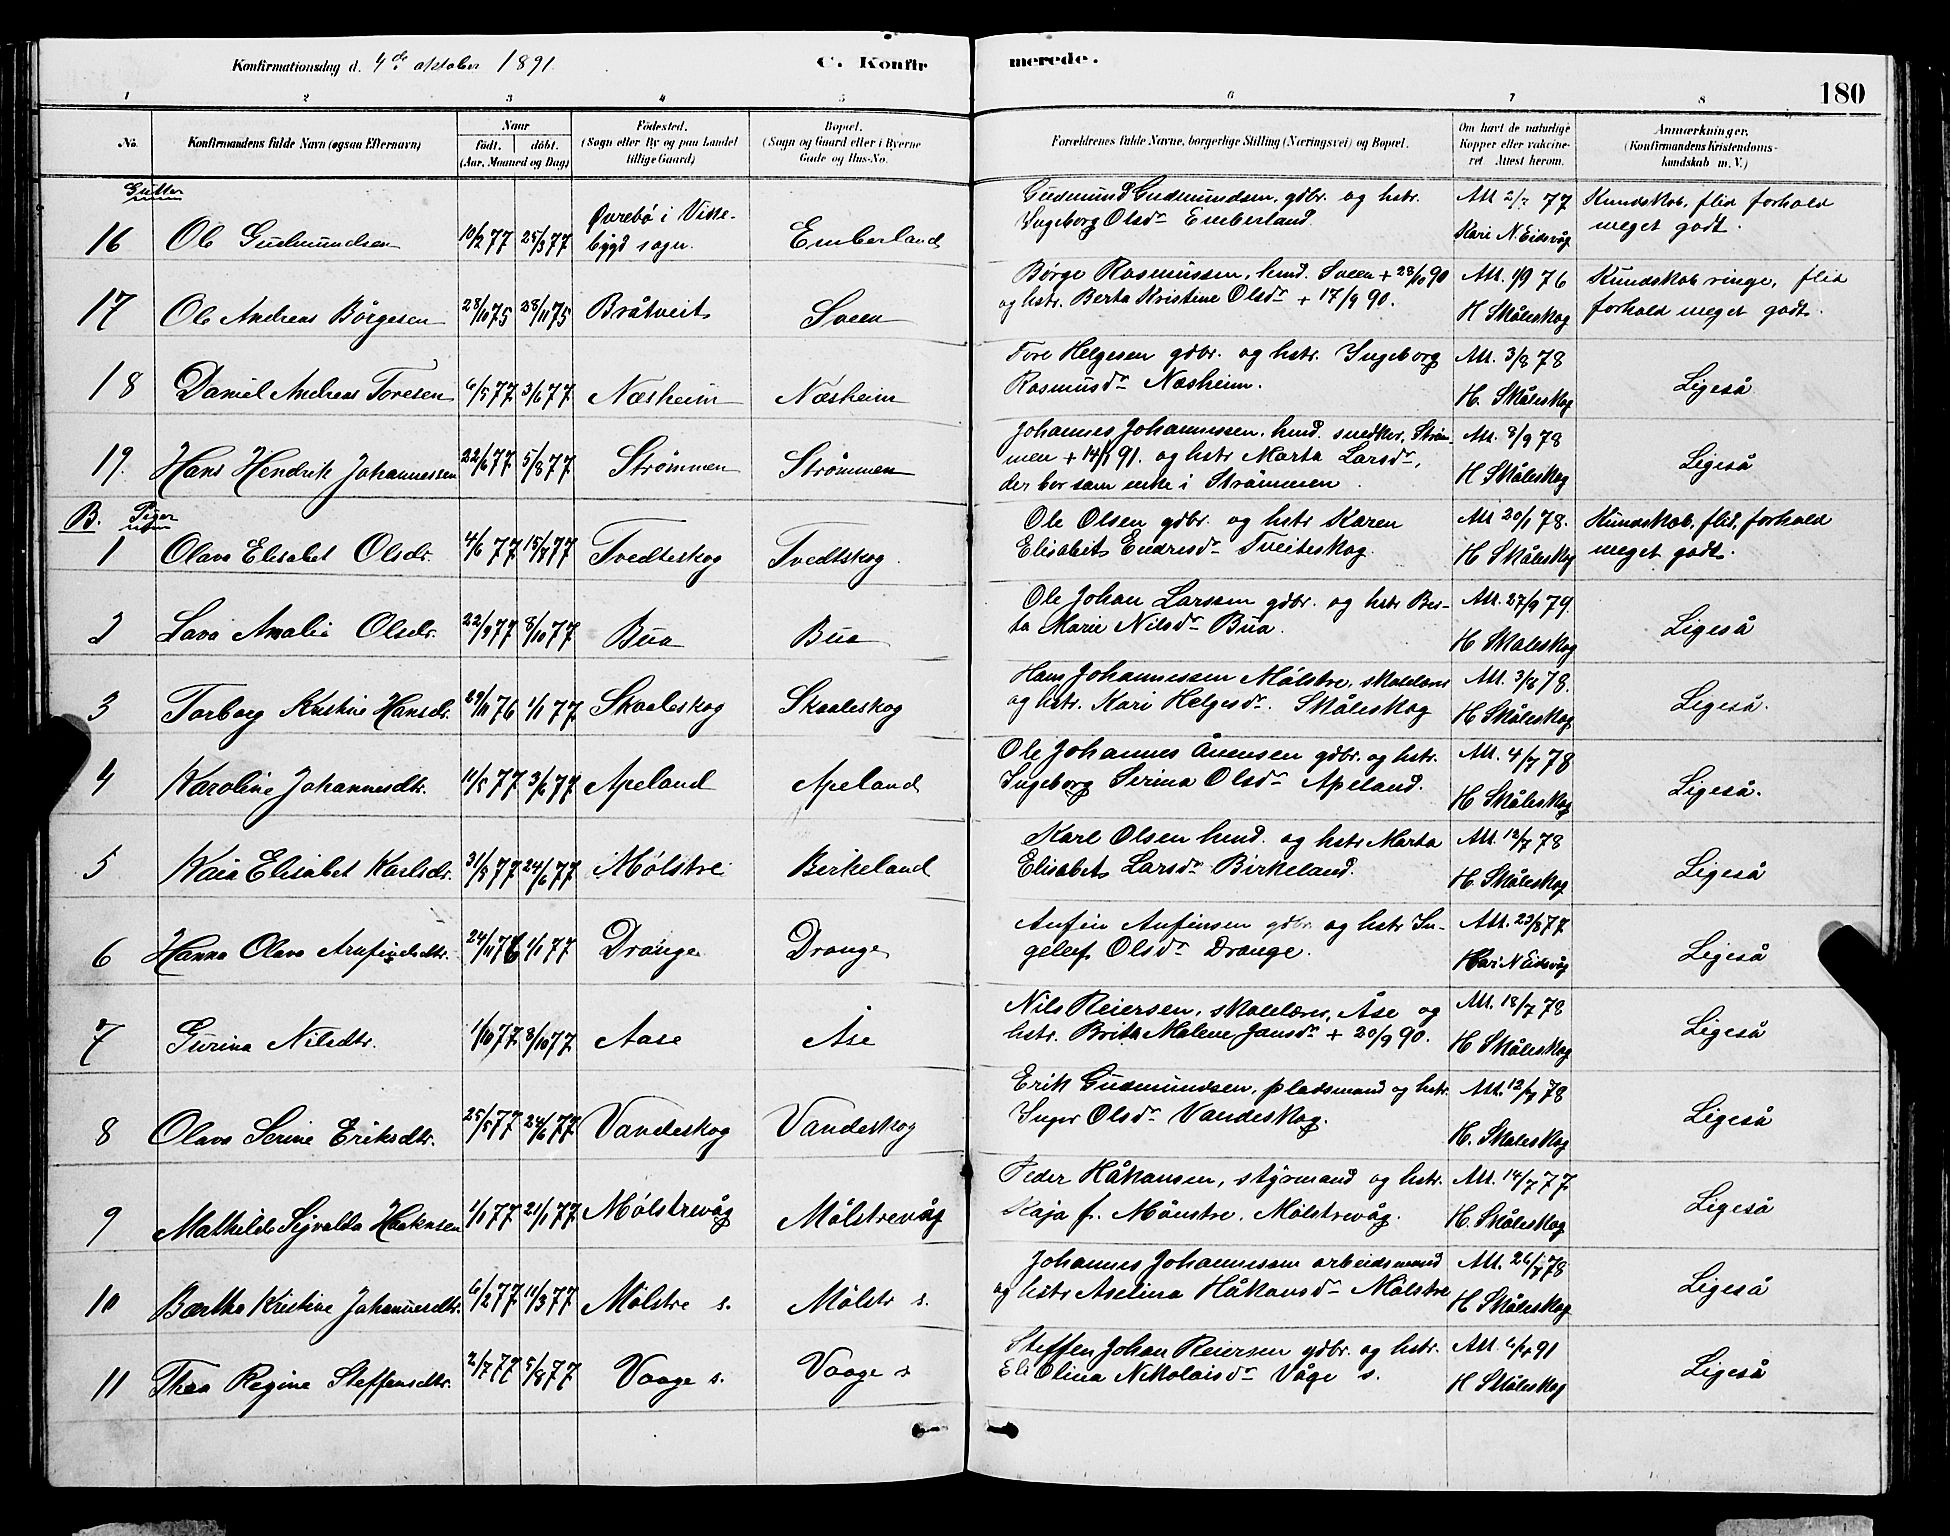 Konfirmationsdag d. 4de oktober 1891 C. Konfir merede. 180
1 2 3 4 5 6 7 8
No. Konfirmandens fulde Navn (ogsaa Efternavn) Naar født. døbt. (Aar, Maaned og Dag) Fødested. (Sogn eller By og paa Landet tillige Gaard) Bopæl. (Sogn og Gaard eller i Byerne Gade og Hus-No. Forældrenes fulde Navne, borgerlige Stilling (Næringsvei) og Bopæl. Om havt de naturlige Kopper eller vakcineret Attest herom. Anmærkninger. (Konfirmandens Kristendomskundskab m. V.)
Gutter
16 Ole Gudmundsen 10/2 77 25/3 77 Øvrebö i Vissebygd sogn. Emberland Gudmund Gudmundsen, gdbr. og hstr. Ingeborg Olsdr Emberland. Att 2/7 77 Kari N. Eidsvåg Kundskab, flid forhold meget godt.
17 Ole Andreas Børgesen 28/10 75 28/11 75 Bråtveit Sveen Børge Rasmussen, hmd. Sveen + 23/10 90 og hstr. Berta Kristine Olsdr + 17/9 90. Att. 1/9 76 H Skåleskog Kundskab ringe, flid forhold meget godt.
18 Daniel Andreas Toresen 6/5 77 3/6 77 Næsheim Næsheim Tore Helgesen gdbr. og hstr. Ingeborg Rasmusdr Næsheim. Att. 3/8 78 H. Skåleskog Ligeså
19. Hans Hendrik Johannessen 22/6 77 5/8 77 Strømmen Strømmen Johannes Johannessen, hmd. snedker, Strømmen + 14/1 91. og hstr Marta Larsdr, der bor som enke i Strømmen. Att. 8/9 78 H Skåleskog Ligeså
B. Piger
1 Olava Elisabet Olsdr. 4/6 77 15/7 77 Tvedteskog Tvedtskog. Ole Olsen gdbr. og hstr Karen Elisabet Endresdr Tveiteskog. Att 20/1 78. H Skåleskog Kundskab, flid, forhold meget godt.
2 Lava Amalie Olsdr. 22/9 77 8/10 77 Bua Bua Ole Johan Larssen gdbr. og hstr Berta Marie Nilsdr Bua. Att. 27/9 79. H Skåleskog Ligeså
3 Torborg Kristine Hansdr. 29/11 76 1/1 77 Skaaleskog Skaaleskog Hans Johannessen Mølstre, skolelærer og hstr. Kari Helgesdr. Skåleskog Att. 3/8 78. H Skåleskog Ligeså.
4 Karoline Johannesdtr. 11/5 77 3/6 77 Apeland Apeland Ole Johannes Ånensen gdbr. og hstr. Ingeborg Serina Olsdr Apeland. Att. 4/7 78 H Skåleskog Ligeså.
5 Kaia Elisabet Karlsdr. 31/5 77 24/6 77 Mølstre Birkeland Karl Olsen hmd. og hstr Marta Elisabet Larsdr Birkeland. Att. 12/7 78 H. Skåleskog Ligeså
6 Hanna Olava Arnfindsdtr. 24/11 76 1/1 77 Drange Drange Anfin Anfinsen gdbr. og hstr Ingelef Olsdr Drange. Att. 23/8 77 Kari N Eidsvåg Ligeså
7 Gurina Nilsdtr. 1/10 77 8/10 77 Aase Åse Nils Reiersen, skolelærer, Åse og hstr. Brita Malene Jansdr + 20/9 90. Att. 18/7 78 H Skåleskog Ligeså
8 Olava Serine Eriksdtr. 25/5 77 24/6 77 Vandeskog Vandeskog Erik Gudmundsen, pladsmand og hstr. Inger Olsdr Vandeskog. Att. 12/7 78 H. Skåleskog Ligeså
9 Mathilde Sigvalda Haakensen 1/1 77 21/1 77 Mølstrevåg Mølstrevåg Peder Håkansen, styrmand og hstr. Kaja f. Mönstre. Mølstrevåg. Att. 14/7 77. H. Skåleskog Ligeså
10 Bærtha Kristine Johannesdtr. 6/2 77. 11/3 77 Mølstre s. Mølstr s. Johannes Johannessen arbeidsmand og hstr Aselina Håkansdr Mølstre Att. 26/7 78 H Skåleskog Ligeså
11 Thea Regine Steffensdtr. 2/7 77 5/8 77 Vaage s. Vaage s Steffen Johan Reiersen gdbr. og hstr. Eli Olina Nikolaisdr Våge s. Att. 6/4 91 H Skåleskog Ligeså